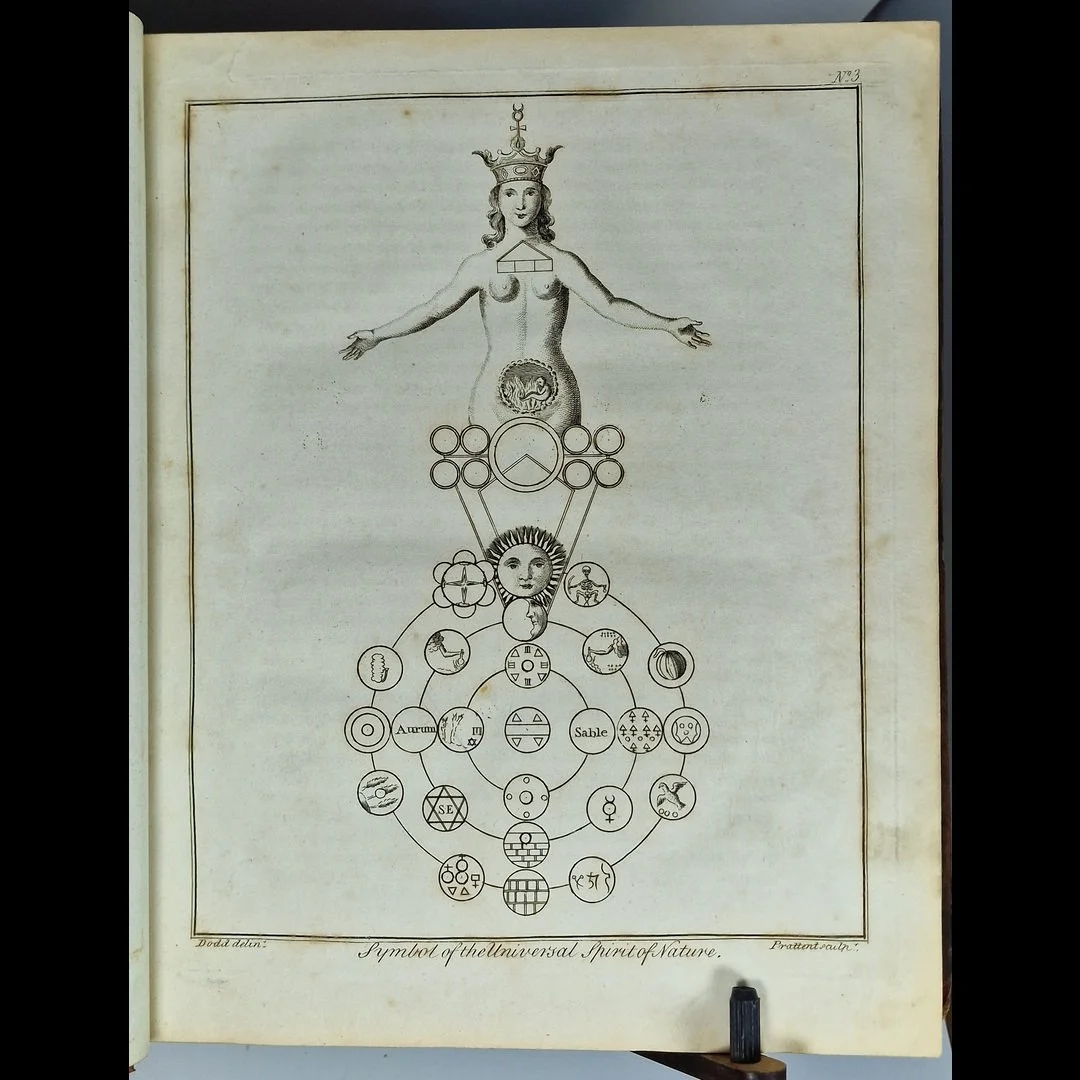 Nº 3
III
III
Aurum
III
Sable
S.E
Dodd delinᵗ.
Symbol of the Universal Spirit of Nature.
Prattent sculpᵗ.